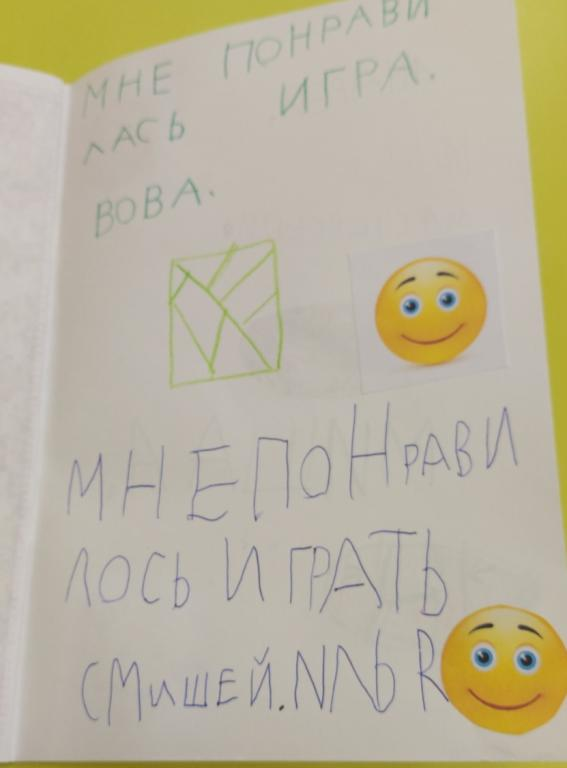 МНЕ ПОНРАВИ
ЛАСЬ ИГРА.
ВОВА.
МНЕ ПОНРАВИ
ЛОСЬ ИГРАТЬ
СМИШЕЙ. ИЛЬЯ